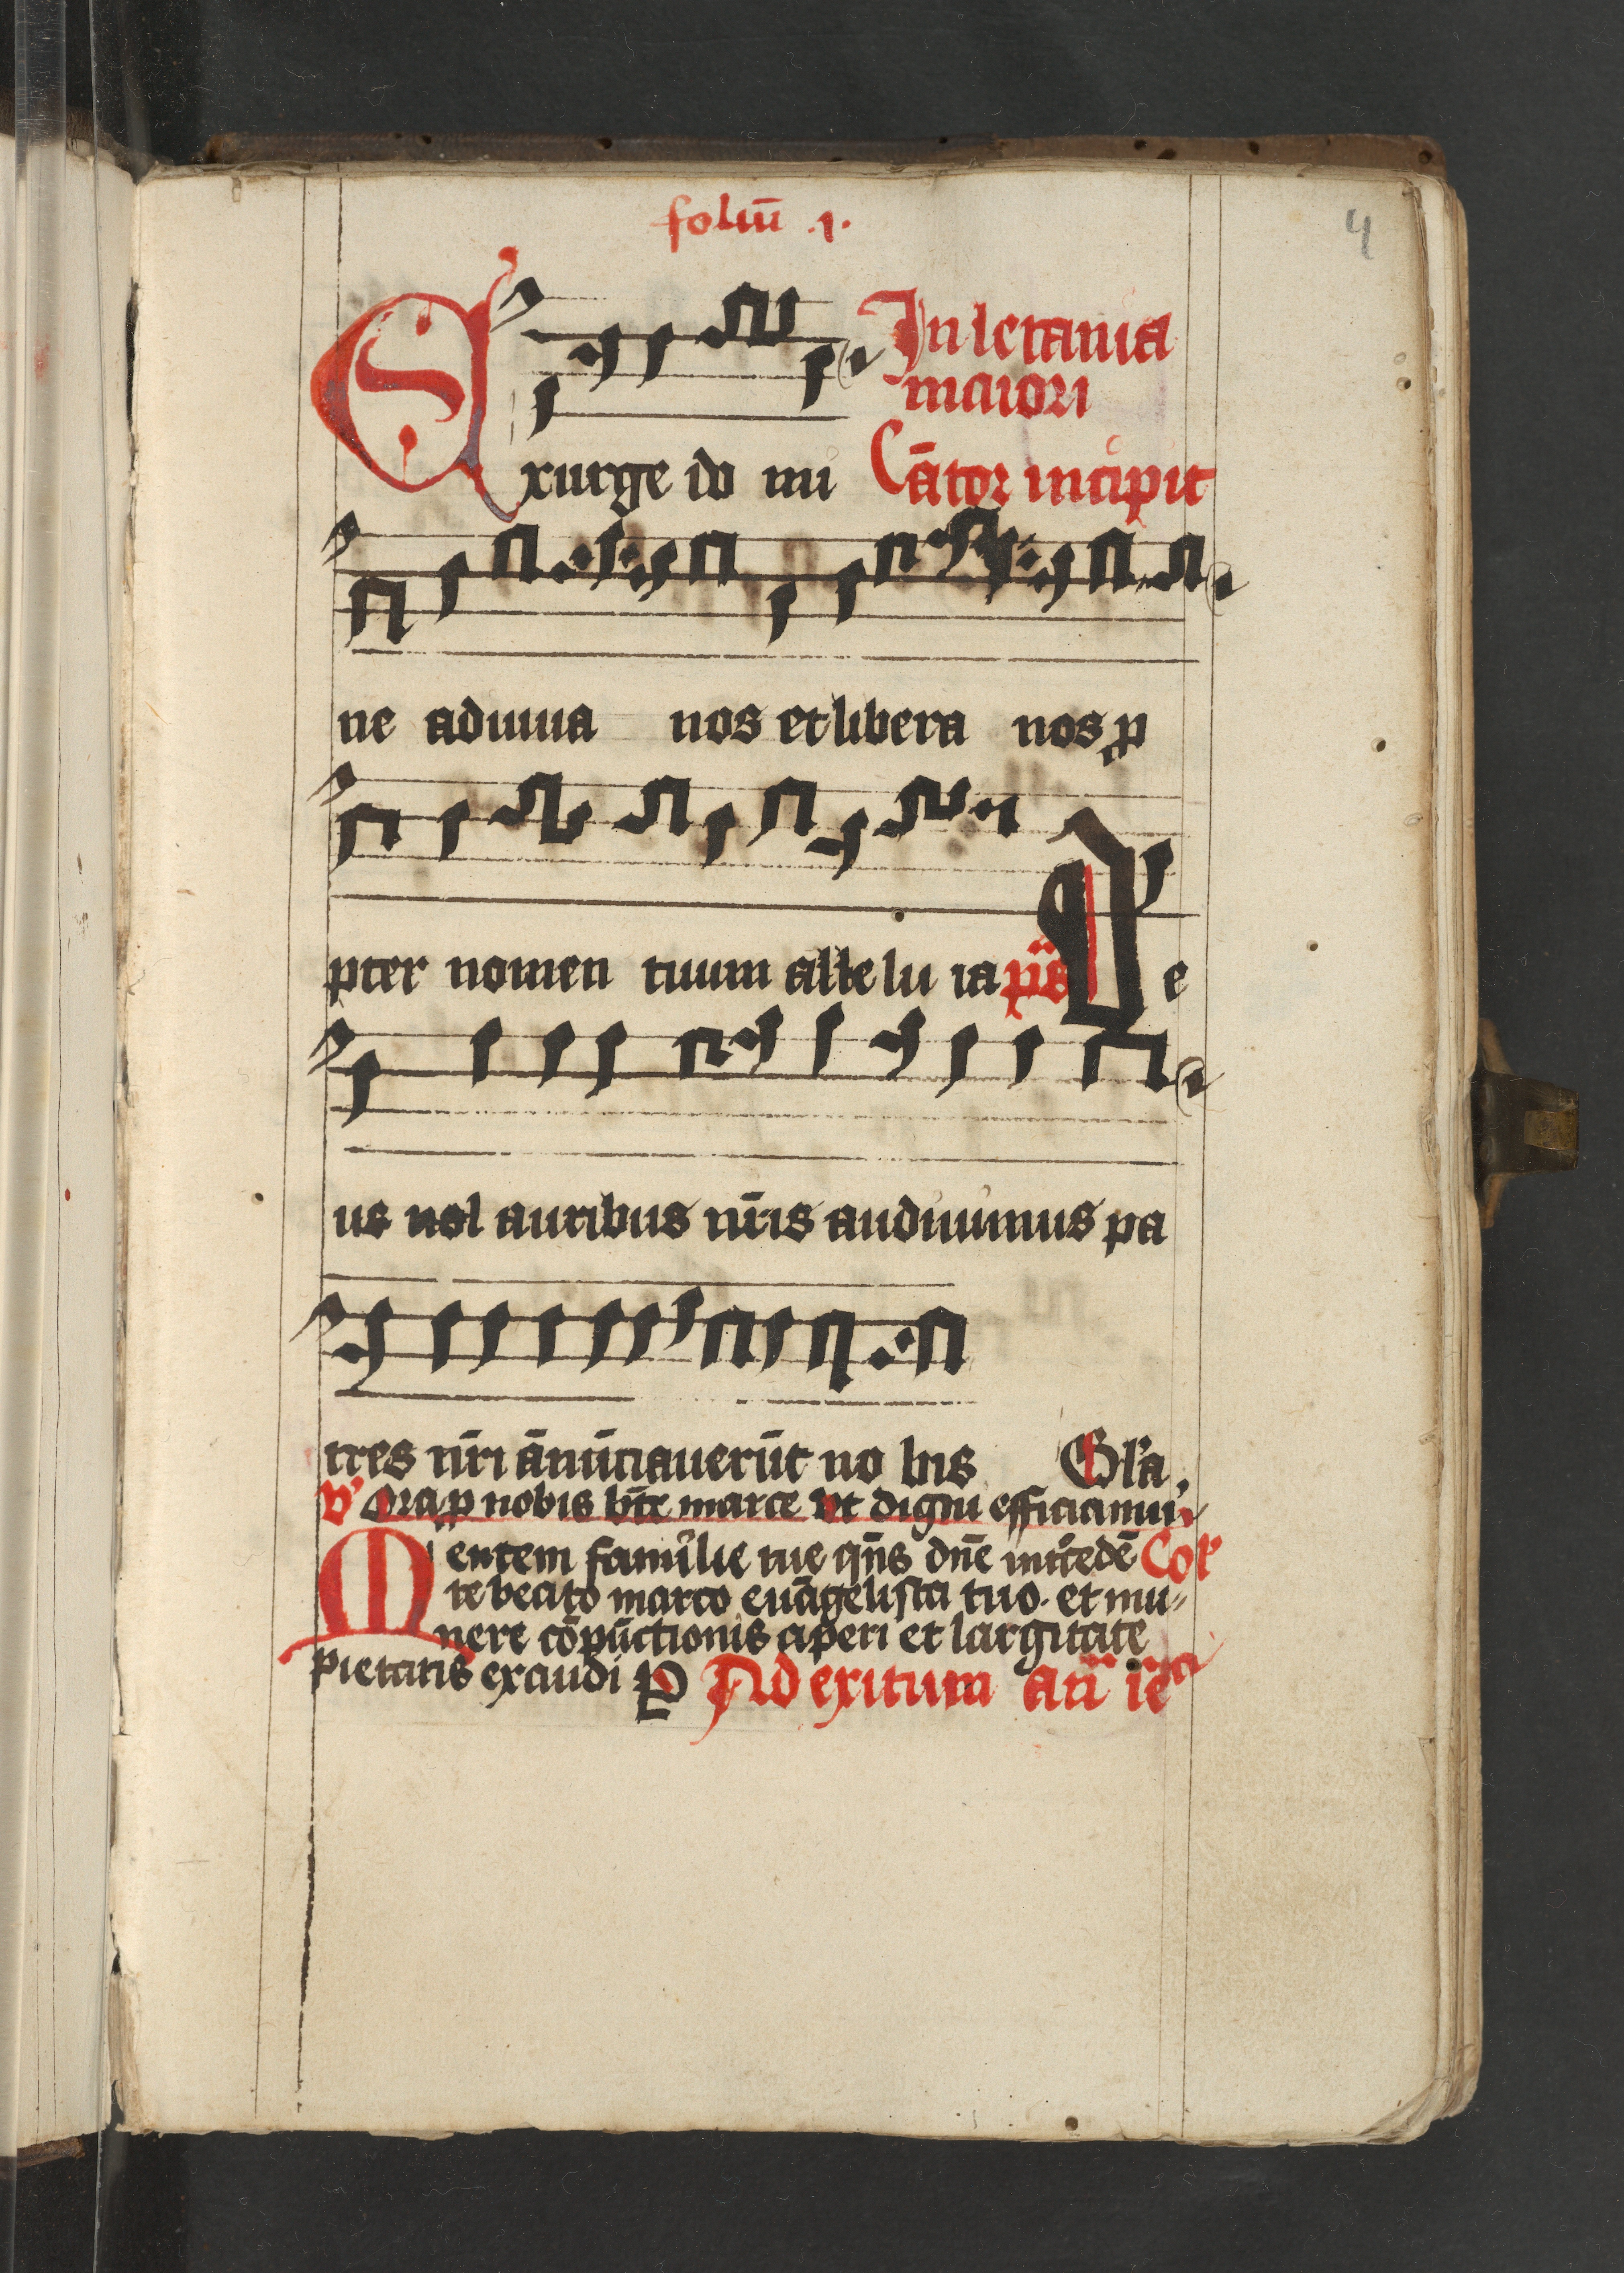 foliū .1.
4
In letania
maiori
Exurge do mi Cātor incipit
ne adiuua nos et libera nos ꝓ
pter nomen tuum alle lu ia ps De
us nol auribus nr̄is audiuimus pa
tres nr̄i ānūciauerūt no bis Gl'a
V' Ora ꝓ nobis bt̄e marce vt digni efficiamur
Mentem familie tue qn̄s dn̄e int̄cedē Col'
te beato marco euāgelista tuo. et mu
nere cōpūctionis aperi et largitate
pietatis exaudi P Ad exitum